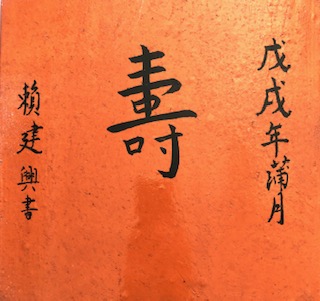 戊戌年蒲月
壽
賴建興書